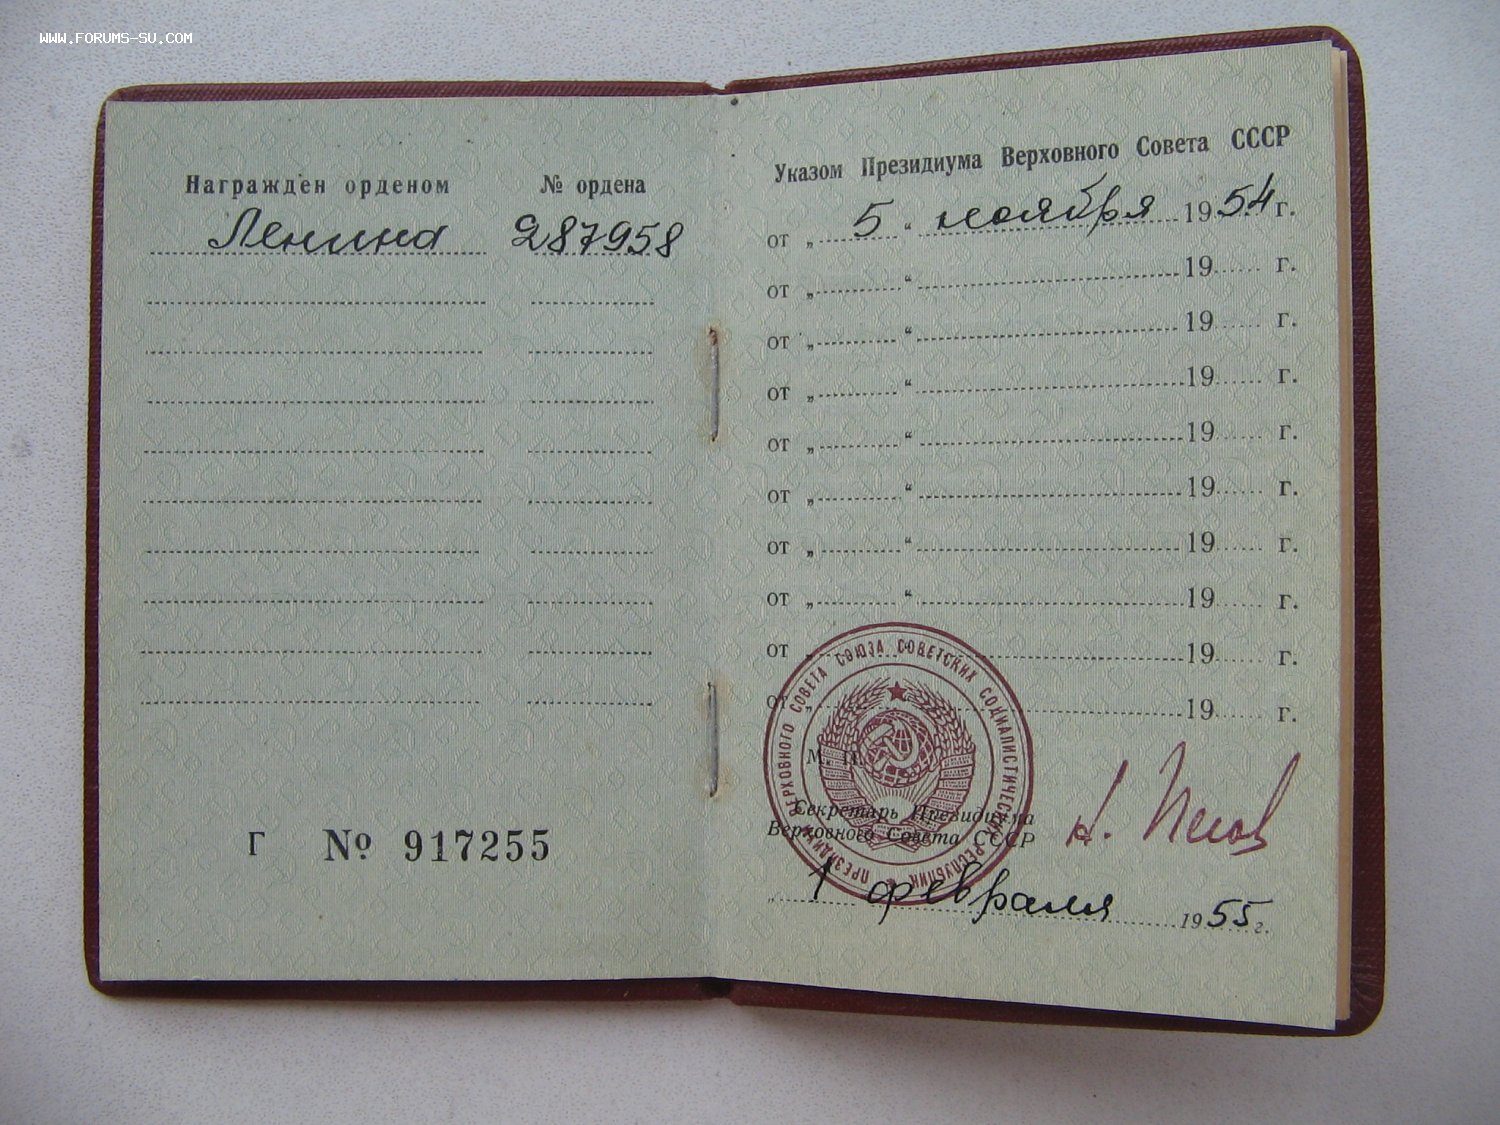 WWW.FORUMS-SU.COM
Награжден орденом № ордена
Ленина 287958
Г № 917255
Указом Президиума Верховного Совета СССР
от „ 5 “ ноября 1954 г.
от „ “ 19 г.
от „ “ 19 г.
от „ “ 19 г.
от „ “ 19 г.
от „ “ 19 г.
от „ “ 19 г.
от „ “ 19 г.
от „ 19 г.
от 19 г.
ПРЕЗИДИУМ ВЕРХОВНОГО СОВЕТА СОЮЗА СОВЕТСКИХ СОЦИАЛИСТИЧЕСКИХ РЕСПУБЛИК
М. П.
Секретарь Президиума
Верховного Совета СССР
Н. Пегов
„ 1 февраля 1955 г.